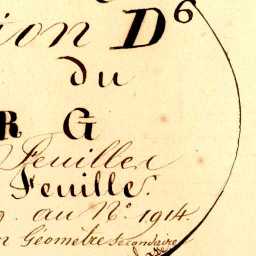 ion D⁶
du
R G
Feuille
Feuille.
au Nº 1914.
n Géomètre Secondaire